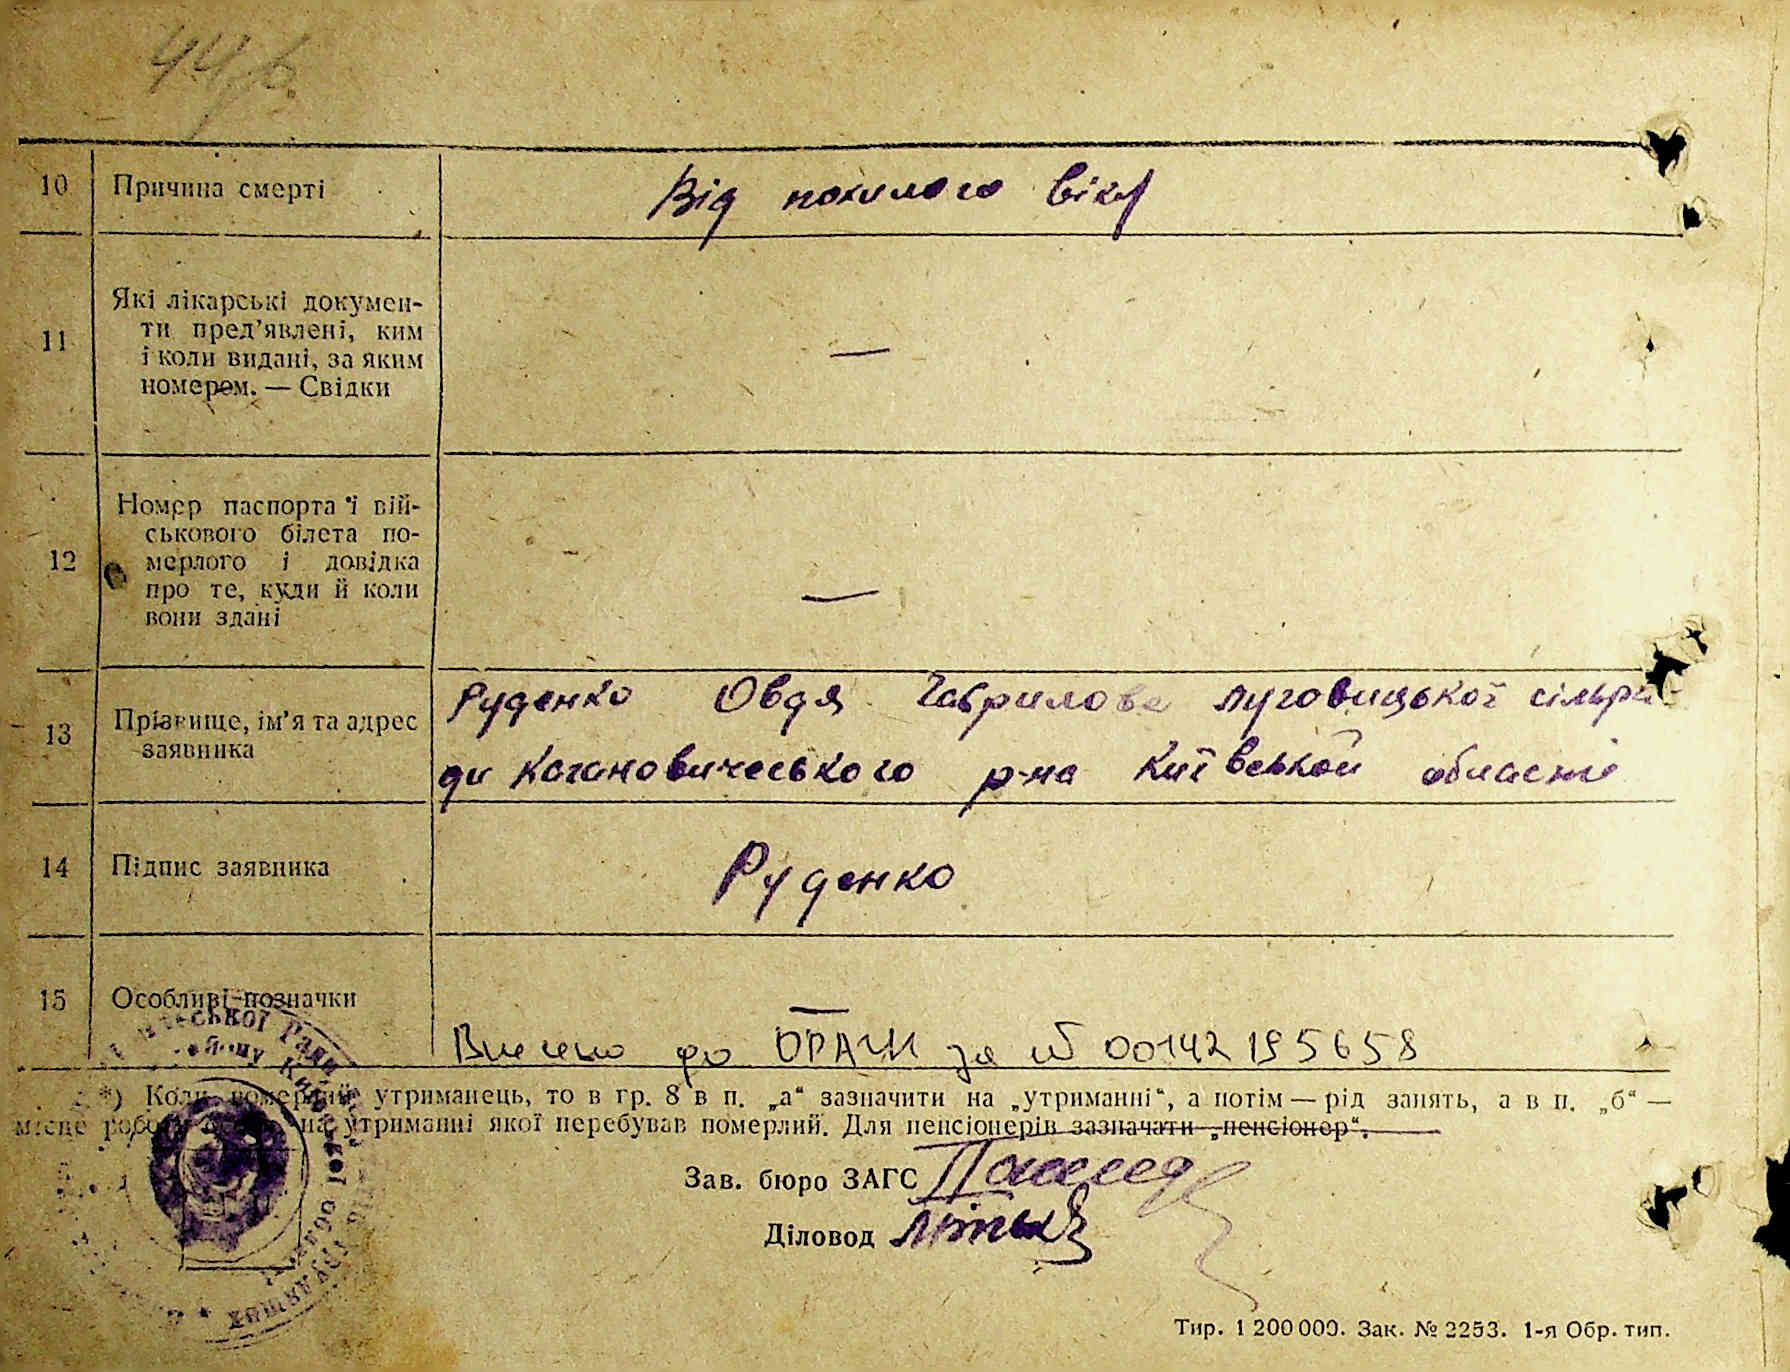 10 Причина смерті Від похилого віку
11 Які лікарські докумен-
ти пред’явлені, ким
і коли видані, за яким
номером. — Свідки —
12 Номер паспорта і вій-
ськового білета по-
мерлого і довідка
про те, куди й коли
вони здані —
13 Прізвище, ім’я та адрес
заявника
Руденко Овдя Гаврилове луговицької сільра-
ди Кагановичеського р-на Київської області
14 Підпис заявника Руденко
15 Особливі позначки —
Внесено до ОРАЦС за № 00142195658
*) Коли померлий утриманець, то в гр. 8 в п. „а“ зазначити на „утриманні“, а потім — рід занять, а в п. „б“ —
місце роботи на утриманні якої перебував померлий. Для пенсіонерів зазначати „пенсіонер“.
Зав. бюро ЗАГС
Діловод
Тир. 1 200 000. Зак. № 2253. 1-я Обр. тип.